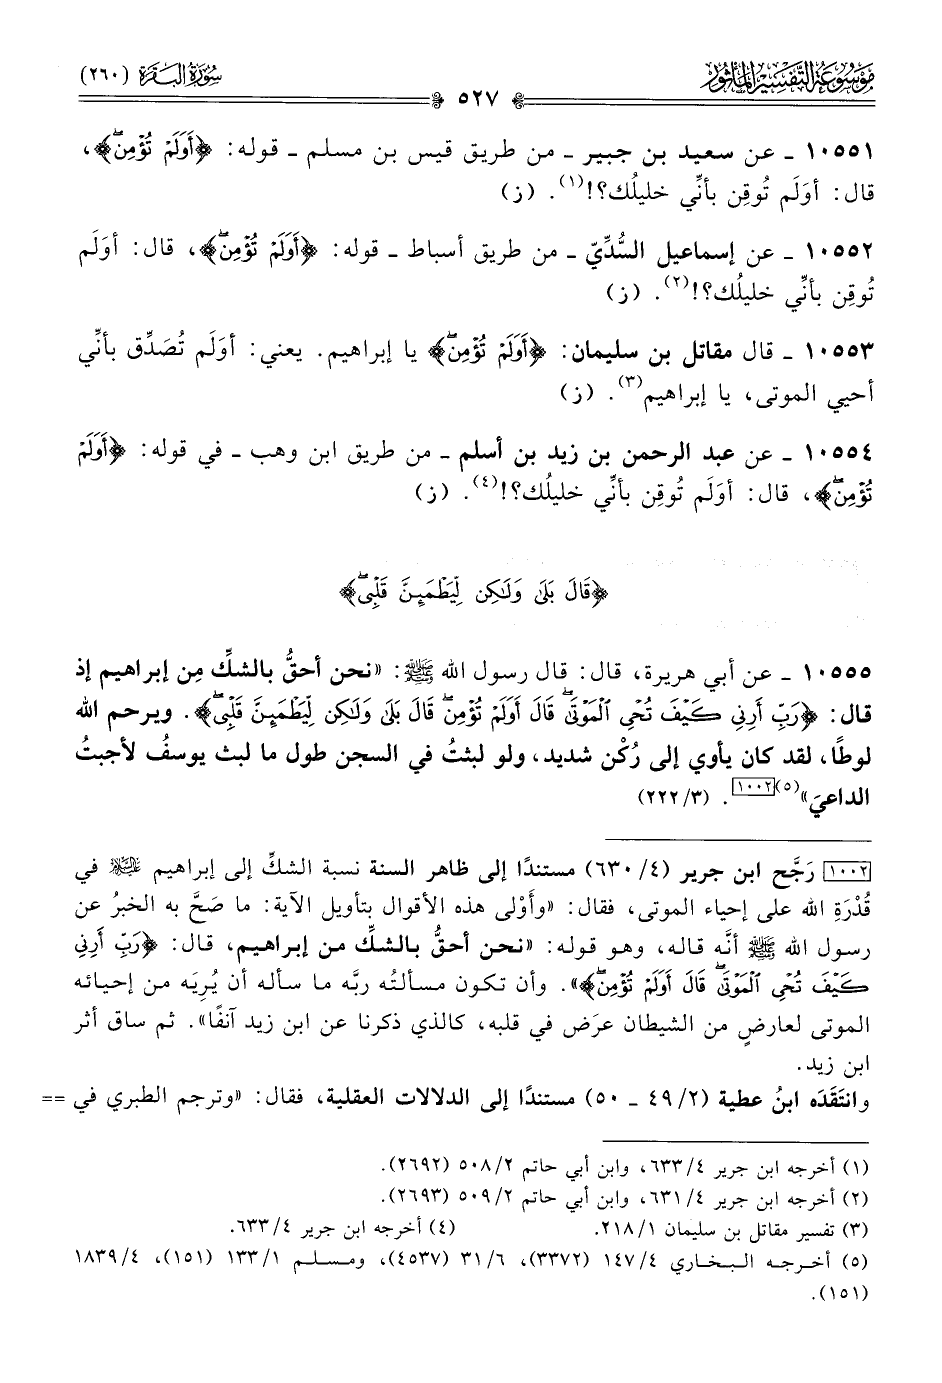 موسوعة التفسير المأثور
سورة البقرة (٢٦٠)
٥٢٧
١٠٥٥١ ـ عن سعيد بن جبير ـ من طريق قيس بن مسلم ـ قوله: ﴿أَوَلَمْ تُؤْمِنۖ﴾،
قال: أوَلَم تُوقِن بأنِّي خليلُك؟!(١). (ز)
١٠٥٥٢ ـ عن إسماعيل السُّدِّيّ ـ من طريق أسباط ـ قوله: ﴿أَوَلَمْ تُؤْمِنۖ﴾، قال: أوَلَم
تُوقِن بأنِّي خليلُك؟!(٢). (ز)
١٠٥٥٣ ـ قال مقاتل بن سليمان: ﴿أَوَلَمْ تُؤْمِنۖ﴾ يا إبراهيم. يعني: أوَلَم تُصَدِّق بأنِّي
أحيي الموتى، يا إبراهيم(٣). (ز)
١٠٥٥٤ ـ عن عبد الرحمن بن زيد بن أسلم ـ من طريق ابن وهب ـ في قوله: ﴿أَوَلَمْ
تُؤْمِنۖ﴾، قال: أوَلَم تُوقِن بأنِّي خليلُك؟!(٤). (ز)
﴿قَالَ بَلَىٰ وَلَٰكِن لِّيَطْمَئِنَّ قَلْبِىۖ﴾
١٠٥٥٥ ـ عن أبي هريرة، قال: قال رسول الله ﷺ: «نحن أحقُّ بالشكِّ مِن إبراهيم إذ
قال: ﴿رَبِّ أَرِنِى كَيْفَ تُحْىِ ٱلْمَوْتَىٰۖ قَالَ أَوَلَمْ تُؤْمِنۖ قَالَ بَلَىٰ وَلَٰكِن لِّيَطْمَئِنَّ قَلْبِىۖ﴾. ويرحم الله
لوطًا، لقد كان يأوي إلى رُكْن شديد، ولو لبثتُ في السجن طول ما لبث يوسفُ لأجبتُ
الداعيَ»(٥)[١٠٠٢]. (٣/ ٢٢٢)
[١٠٠٢] رَجَّح ابن جرير (٤/ ٦٣٠) مستندًا إلى ظاهر السنة نسبة الشكِّ إلى إبراهيم عليه السلام في
قُدْرَةِ الله على إحياء الموتى، فقال: «وأَوْلى هذه الأقوال بتأويل الآية: ما صَحَّ به الخبرُ عن
رسول الله ﷺ أنَّه قاله، وهو قوله: «نحن أحقُّ بالشكِّ من إبراهيم، قال: ﴿رَبِّ أَرِنِى
كَيْفَ تُحْىِ ٱلْمَوْتَىٰۖ قَالَ أَوَلَمْ تُؤْمِنۖ﴾». وأن تكون مسألتُه ربَّه ما سأله أن يُرِيَه من إحيائه
الموتى لعارضٍ من الشيطان عرَض في قلبه، كالذي ذكرنا عن ابن زيد آنفًا». ثم ساق أثر
ابن زيد.
وانتَقَدَه ابنُ عطية (٢/ ٤٩ ـ ٥٠) مستندًا إلى الدلالات العقلية، فقال: «وترجم الطبري في ==
(١) أخرجه ابن جرير ٤/ ٦٣٣، وابن أبي حاتم ٢/ ٥٠٨ (٢٦٩٢).
(٢) أخرجه ابن جرير ٤/ ٦٣١، وابن أبي حاتم ٢/ ٥٠٩ (٢٦٩٣).
(٣) تفسير مقاتل بن سليمان ١/ ٢١٨. (٤) أخرجه ابن جرير ٤/ ٦٣٣.
(٥) أخرجه البخاري ٤/ ١٤٧ (٣٣٧٢)، ٦/ ٣١ (٤٥٣٧)، ومسلم ١/ ١٣٣ (١٥١)، ٤/ ١٨٣٩
(١٥١).